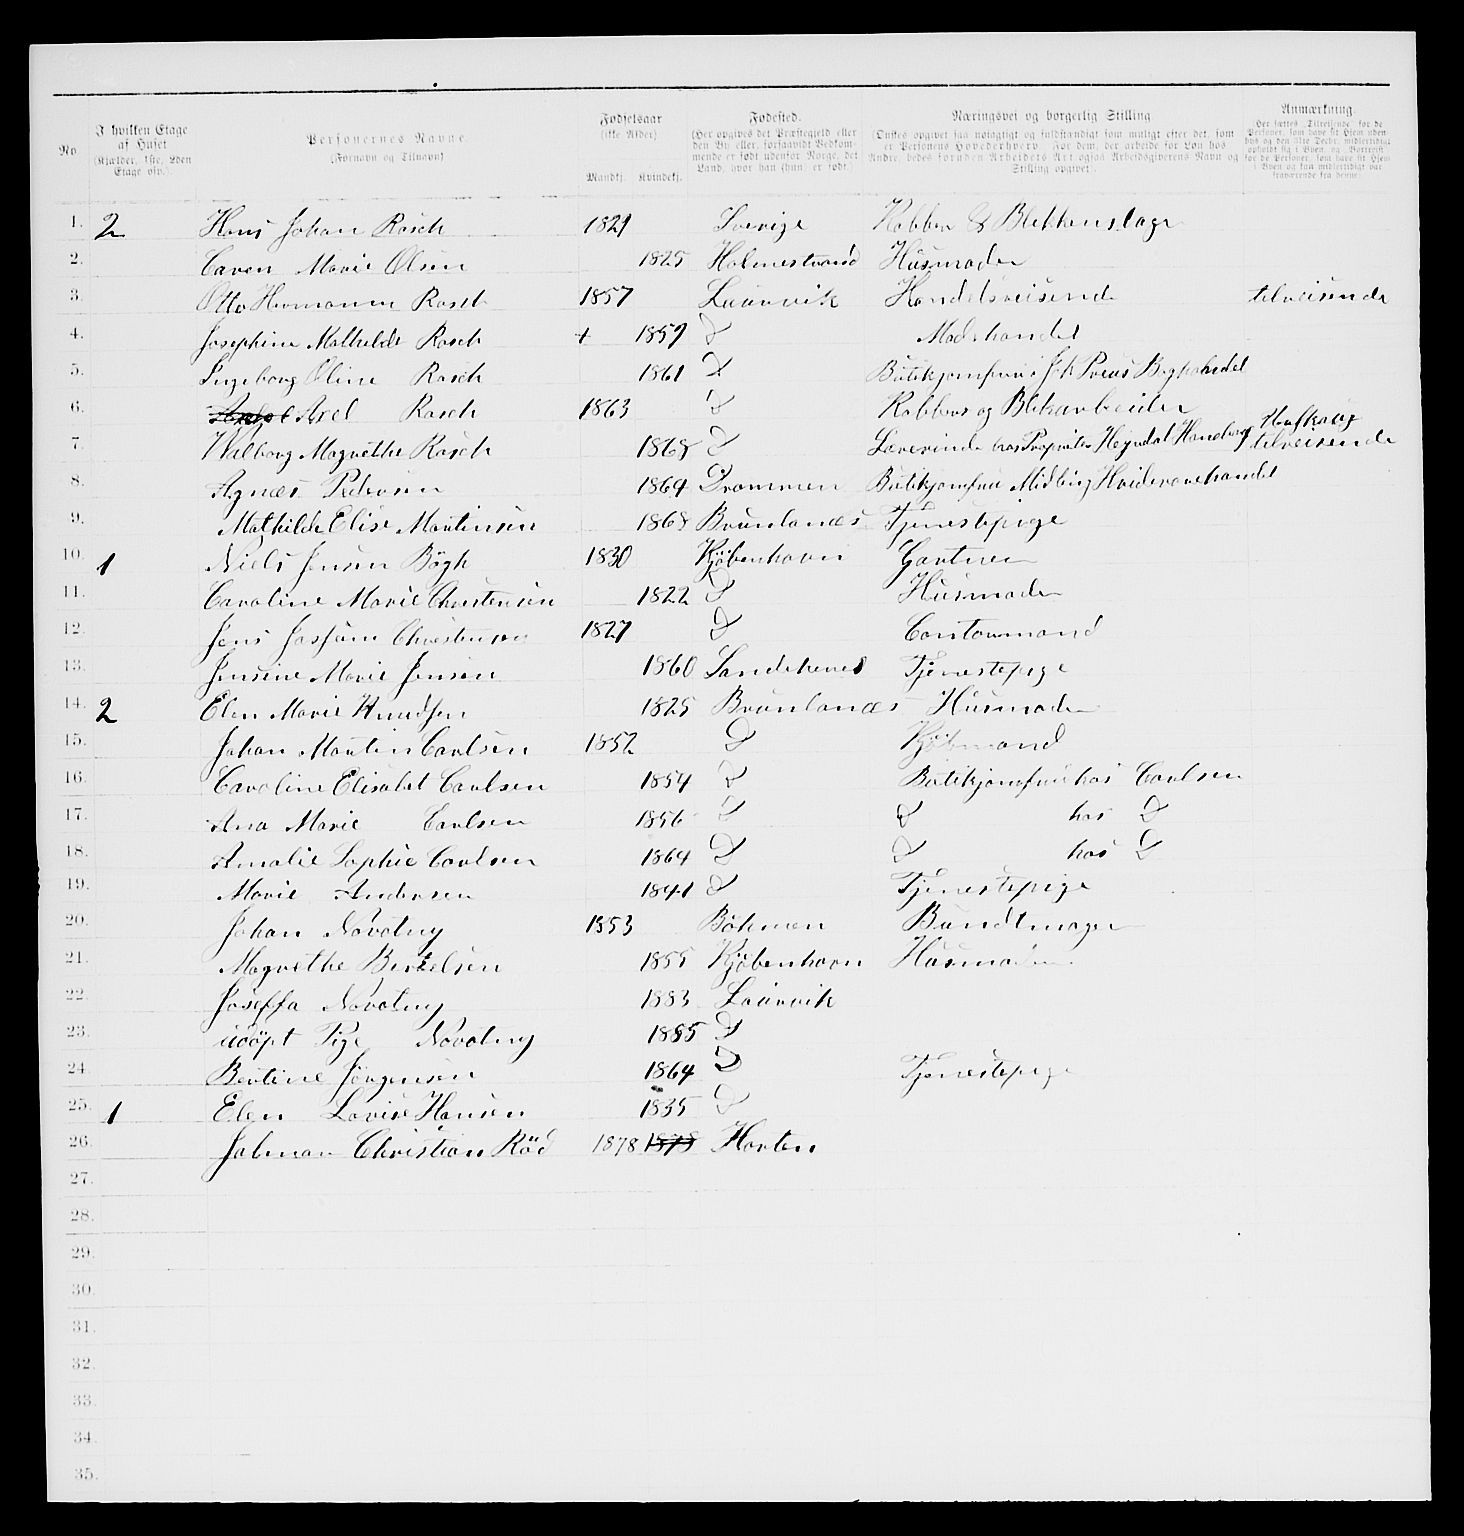 No.
I hvilken Etage af Huset (Kjælder, 1ste, 2den Etage osv.).
Personernes Navne. (Fornavn og Tilnavn)
Fødselsaar (ikke Alder) Mandkj. Kvindekj.
Fødested. (Her opgives det Præstegjeld eller den By eller, forsaavidt Bedkommende er født udenfor Norge, det Land, hvor han (hun) er født.)
Næringsvei og borgerlig Stilling (Ønskes opgivet saa nøiagtigt og fuldstændigt som muligt efter det, som er Personens Hovederhverv. For dem, der arbeide for Løn hos Andre, bedes foruden Arbeidets Art ogsaa Arbeidsgiverens Navn og Stilling opgivet.)
Anmærkning.
1. 2 Hans Johan Rasch 1821 Sverige Kobber & Blekkenslager
2. Caren Marie Olsen 1825 Holmestrand Husmoder
3. Otto Hermann Rasch 1857 Laurvik Handelsreisende tilreisende
4. Josephine Mathilde Rasch + 1859 D Modehandel
5. Ingeborg Oline Rasch 1861 D Butikjomfru i Boghandel
6. Axel Rasch 1863 D Kobber og Blikarbeider
7. Walborg Magrethe Rasch 1868 D Lærerinde hos Proprietær Heyndal tilreisende
8. Agnæs Pedersen 1864 Drammen Butikjomfru Hvidevarehandel
9. Mathilde Elise Martinsen 1868 Brunlanæs Tjenestepige
10. 1 Niels Jensen Bögh 1830 Kjöbenhavn Gartner
11. Caroline Marie Christensen 1822 D Husmoder
12. Jens Christensen 1827 D Contormand
13. Jensine Marie Jensen 1860 Sandehered Tjenestepige
14. 2 Elen Marie Knudsen 1825 Brunlanæs Husmoder
15. Johan Martin Carlsen 1852 D Kjöbmand
16. Caroline Elisabet Carlsen 1854 D Butikjomfru hos Carlsen
17. Ana Marie Carlsen 1856 D D hos D
18. Amalie Sophie Carlsen 1864 D D hos D
19. Marie Andersen 1841 D Tjenestepige
20. Johan Novotny 1853 Böhmen Bundtmager
21. Magrethe Bertelsen 1855 Kjöbenhavn Husmoder
22. Joseffa Novotny 1883 Laurvik
23. udöpt Pige Novotny 1885 D
24. Bertine Jörgensen 1864 D Tjenestepige
25. 1 Elen Lovise Hansen 1835 D
26. Christian Röd 1878 1878 Horten
27.
28.
29.
30.
31.
32.
33.
34.
35.